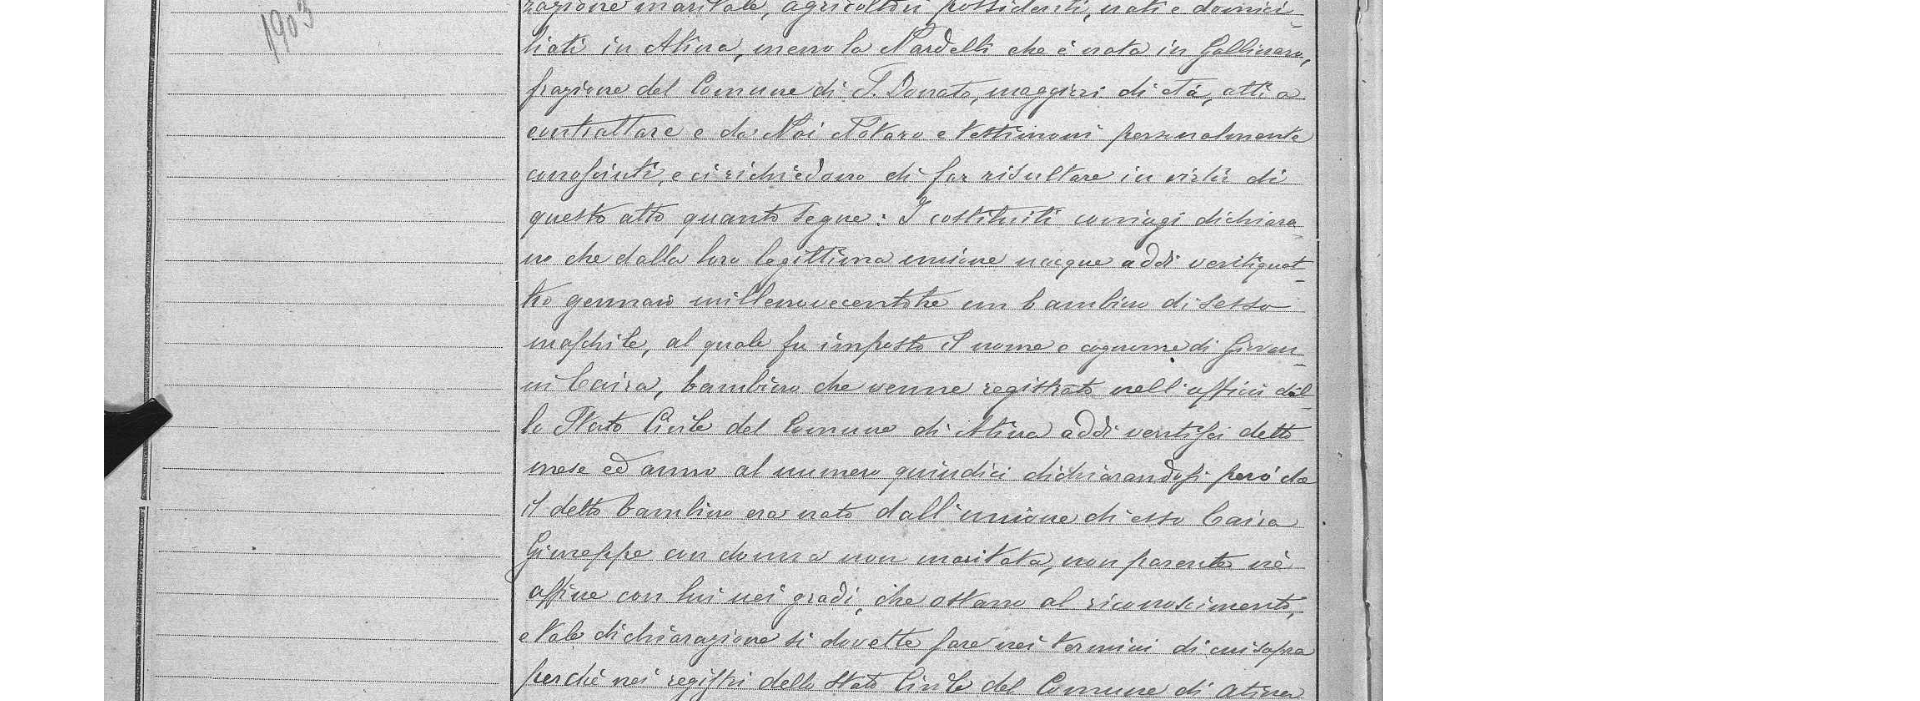 1903
razione maritale, agricoltori possidenti, nati e domici-
liati in Atina, meno la Nardelli che è nata in Gallinaro,
frazione del Comune di S. Donato, maggiori di età, atti a
contrattare e da Noi Notaro e testimoni personalmente
conosciuti, e ci richiedono di far risultare in virtù di
questo atto quanto segue: I costituiti coniugi dichiara-
no che dalla loro legittima unione nacque addì ventiquat-
tro gennaio millenovecentotre un bambino di sesso
maschile, al quale fu imposto il nome e cognome di Giovan-
ni Caira, bambino che venne registrato nell'officio del-
lo Stato Civile del Comune di Atina addì ventisei detto
mese ed anno al numero quindici dichiarandosi però che
il detto bambino era nato dall'unione di esso Caira
Giuseppe con donna non maritata, non parente nè
affine con lui nei gradi, che ostano al riconoscimento,
e tale dichiarazione si dovette fare nei termini di cui sopra
perchè nei registri dello Stato Civile del Comune di Atina